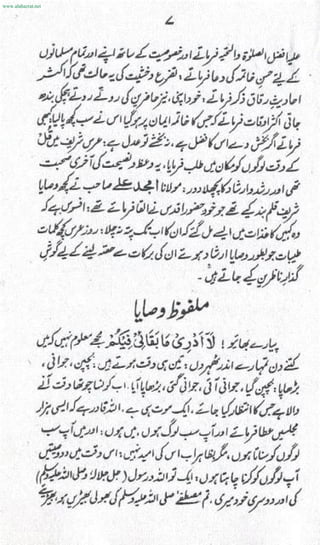 www.alahazrat.net
۷
علیہ افضل الصلوٰۃ والتحیۃ فرماتے اور خصوصیت کے ساتھ اپنے اور تمام مسلمانوں
کے لئے حسن خاتمہ کی دعا فرماتے، تضرع و خشیت کی یہ حالت تھی کہ اکثر
احادیث رقاق ذکر فرماتے، خود اپنی، نیز حاضرین کی روتے روتے ہچکی بندھ
جاتی اکثر اوقات فرماتے کہ جس کا خاتمہ ایمان پر ہو گیا اس نے سب کچھ پا لیا، کبھی
فرماتے اگر بخش دے اس کا فضل ہے، نہ بخشے تو عدل ہے، عرس شریف میں قل
کے وقت لوگوں کو مکان میں طلب فرمایا، یہ وعظ و نصیحت کی آخری صحبت
تھی اور رشد و ارشاد کا پچھلا دور، مولانا امجد علی صاحب نے کچھ وصایا
شریف قلم بند کیے تھے جو خود حضور اقدس نے القا فرمائے تھے، افسوس ہے کہ
وہ کہیں کاغذات میں ایسے مل گئے کہ ان کا اب تک پتہ نہ چلا، روز عرس کچھ کلمات
طیبات جو بطور وصایا ارشاد ہوئے ان کی برکات سے حصہ لینے کے لیے گوش
گذار ناظرین کیے جاتے ہیں۔
ملفوظ وصایا
پیارے بھائیو! لَا اَدْرِیْ مَا بَقَائِیْ فِیْکُمْ مجھے معلوم نہیں کہ میں
کتنے دن تمہارے اندر ٹھہروں، تین ہی وقت ہوتے ہیں، بچپن، جوانی،
بڑھاپا، بچپن گیا، جوانی آئی، جوانی گئی، بڑھاپا آیا، اب کون سا چوتھا وقت آنے
والا ہے جس کا انتظار کیا جائے، ایک موت ہی ہے، اللہ قادر ہے کہ ایسی ہزار
مجلسیں عطا فرمائے اور آپ سب لوگ ہوں، میں ہوں، اور میں آپ سب
لوگوں کو سناتا ہوں، مگر بظاہر اب اس کی امید نہیں، اس وقت میں دو وصیتیں
آپ لوگوں کو کرنا چاہتا ہوں، ایک تو اللہ و رسول (جل جلالہ وصلی اللہ علیہ وسلم)
کی اور دوسری خود میری، تم مصطفےٰ صلی اللہ علیہ وسلم کی بھولی بھیڑیں ہو، بھیڑیے